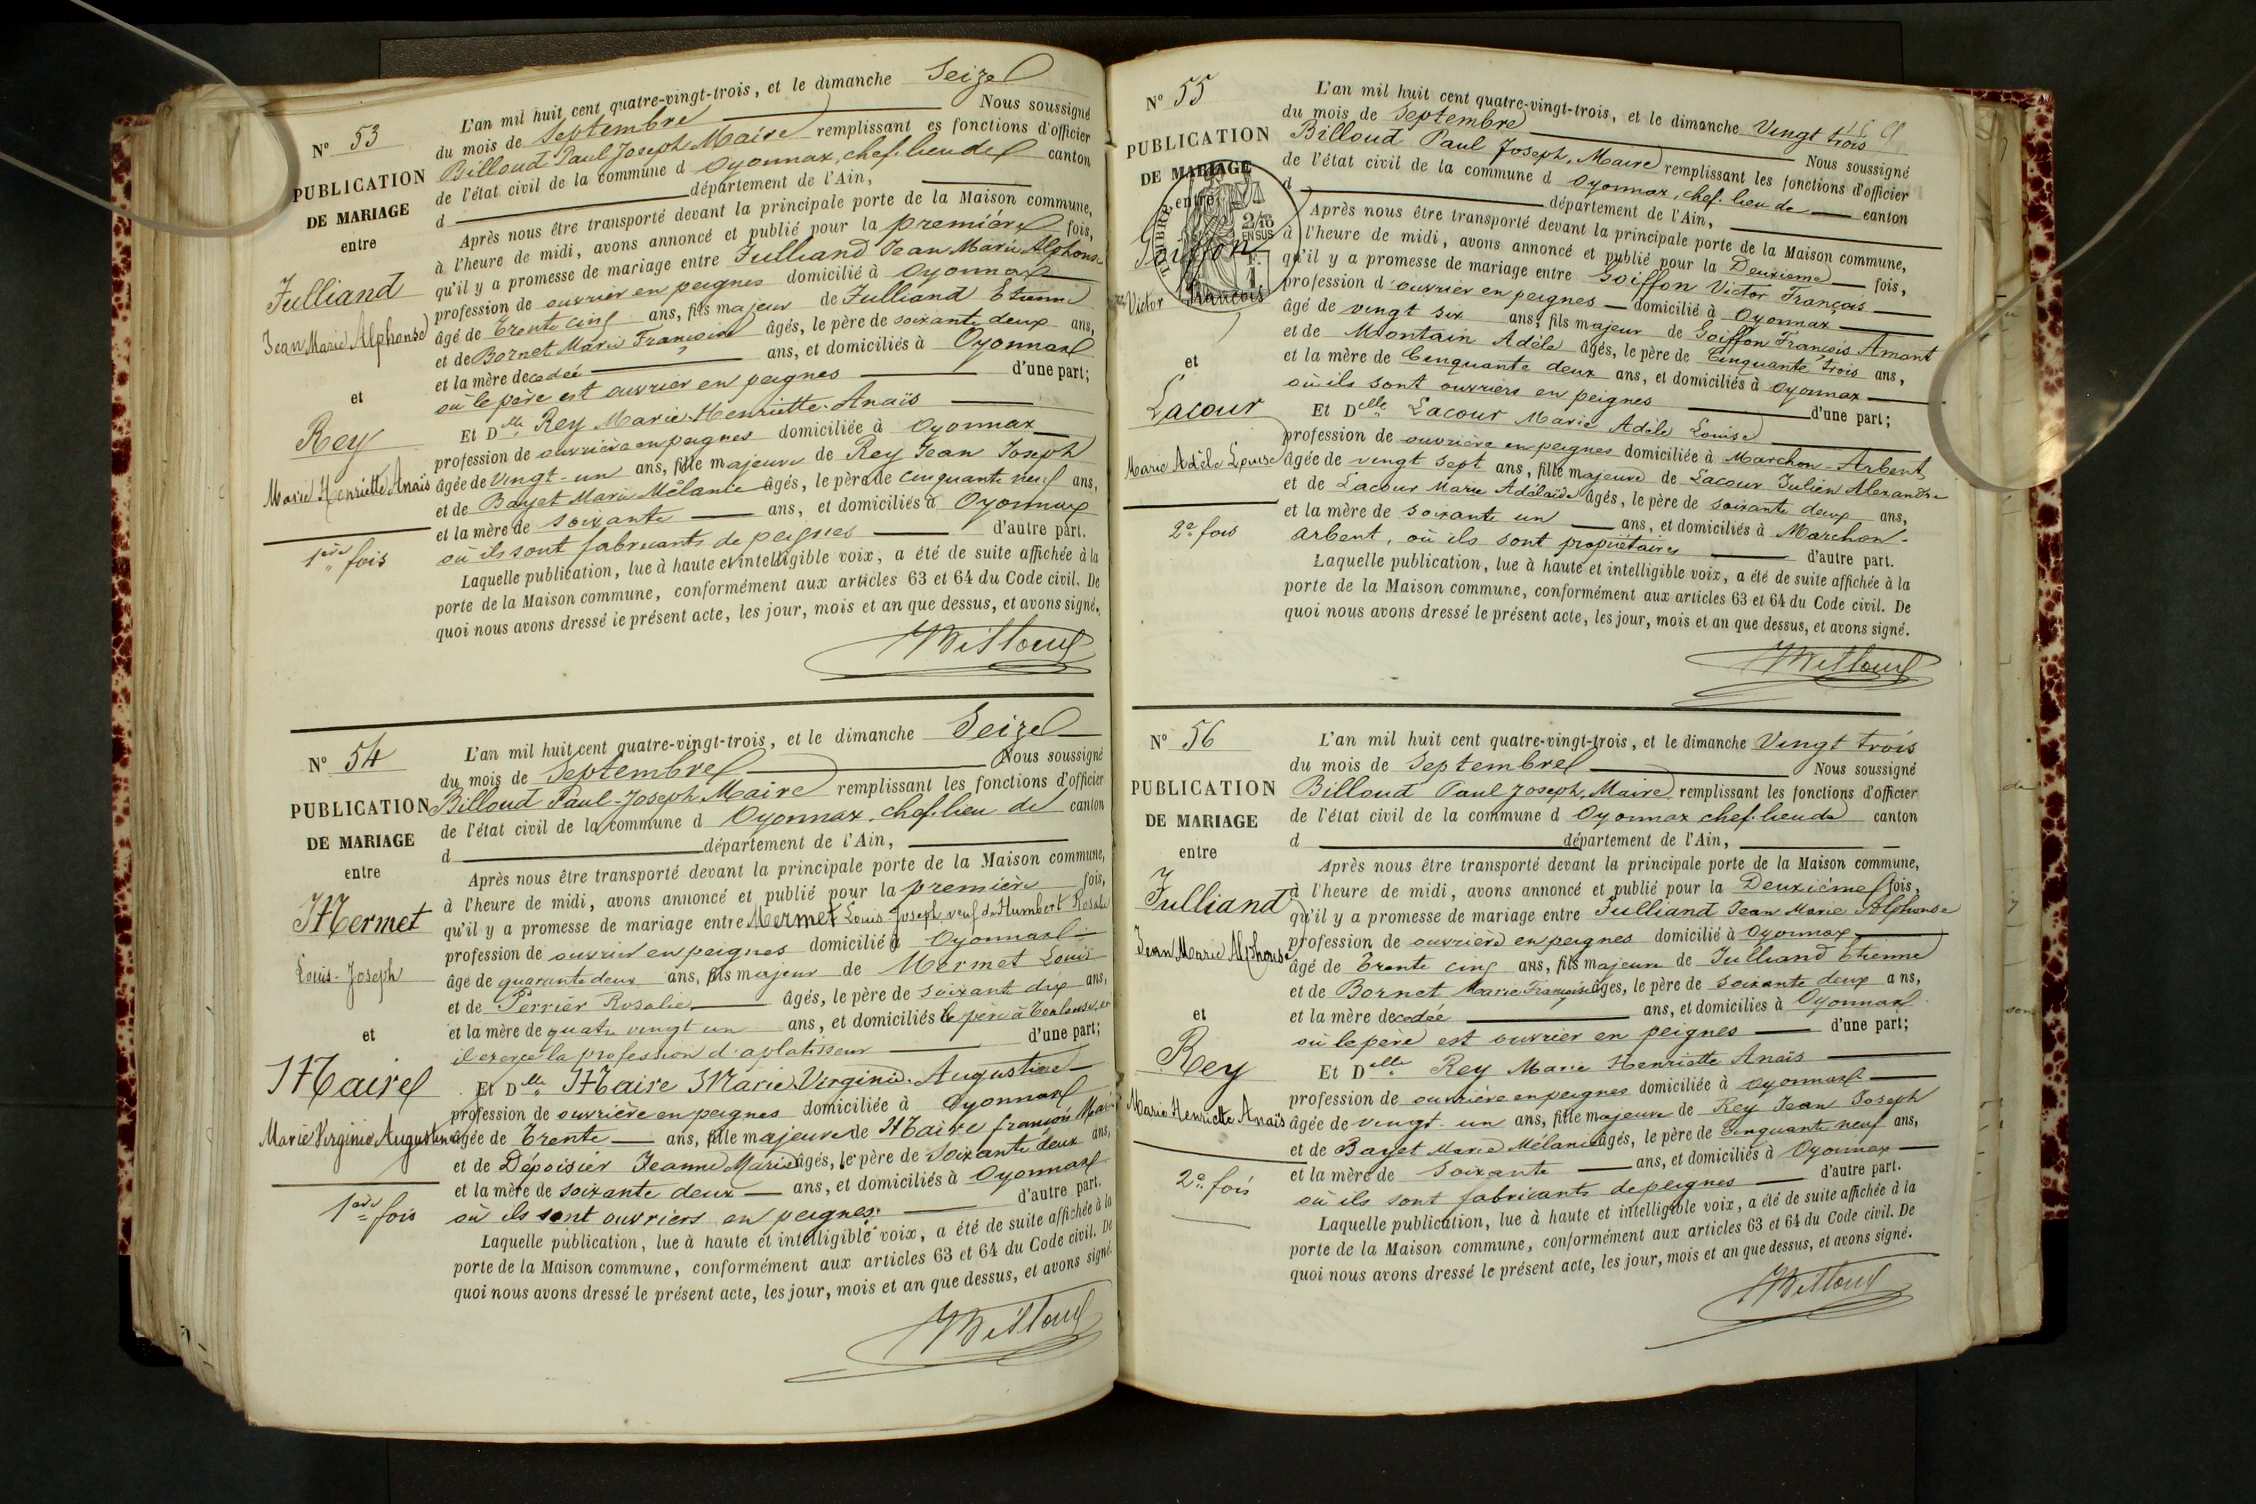 N° 53
PUBLICATION
DE MARIAGE
entre
Julliand
Jean Marie Alphonse
et
Rey
Marie Henriette Anaïs
1ère fois
L'an mil huit cent quatre-vingt-trois, et le dimanche Seize
du mois de Septembre Nous soussigné
Billoud Paul Joseph Maire remplissant es fonctions d'officier
de l'état civil de la commune d Oyonnax, chef-lieu de canton
d département de l'Ain,
Après nous être transporté devant la principale porte de la Maison commune,
à l'heure de midi, avons annoncé et publié pour la première fois,
qu'il y a promesse de mariage entre Julliand Jean Marie Alphonse
profession de ouvrier en peignes domicilié à Oyonnax
âgé de Trente cinq ans, fils majeur de Julliand Etienne
et de Bornet Marie Françoise âgés, le père de soixante deux ans,
et la mère decedée ans, et domiciliés à Oyonnax
où le père est ouvrier en peignes d'une part;
Et Dlle Rey Marie Henriette Anaïs
profession de ouvrière en peignes domiciliée à Oyonnax
âgée de Vingt-un ans, fille majeure de Rey Jean Joseph
et de Bayet Marie Mélanie âgés, le père de cinquante neuf ans,
et la mère de soixante ans, et domiciliés à Oyonnax
où ils sont fabricants de peignes d'autre part.
Laquelle publication, lue à haute et intelligible voix, a été de suite affichée à la
porte de la Maison commune, conformément aux articles 63 et 64 du Code civil. De
quoi nous avons dressé le présent acte, les jour, mois et an que dessus, et avons signé.
Billoud
N° 54
PUBLICATION
DE MARIAGE
entre
Mermet
Louis-Joseph
et
Maire
Marie Virginie Augustine
1ère fois
L'an mil huit cent quatre-vingt-trois, et le dimanche Seize
du mois de Septembre Nous soussigné
Billoud Paul-Joseph Maire remplissant les fonctions d'officier
de l'état civil de la commune d Oyonnax, chef-lieu de canton
d département de l'Ain,
Après nous être transporté devant la principale porte de la Maison commune,
à l'heure de midi, avons annoncé et publié pour la première fois,
qu'il y a promesse de mariage entre Mermet Louis Joseph veuf de Humbert Rosalie
profession de ouvrier en peignes domicilié à Oyonnax
âgé de quarante deux ans, fils majeur de Mermet Louis
et de Perrier Rosalie âgés, le père de soixant dix ans,
et la mère de quatre vingt un ans, et domiciliés le père à Toulouse, où
il exerce la profession d'aplatisseur d'une part;
Et Dlle Maire Marie Virginie Augustine
profession de ouvrière en peignes domiciliée à Oyonnax
âgée de Trente ans, fille majeure de Maire François Marie
et de Dépoisier Jeanne Marie âgés, le père de soixante deux ans,
et la mère de soixante deux ans, et domiciliés à Oyonnax
où ils sont ouvriers en peignes. d'autre part.
Laquelle publication, lue à haute et intelligible voix, a été de suite affichée à la
porte de la Maison commune, conformément aux articles 63 et 64 du Code civil. De
quoi nous avons dressé le présent acte, les jour, mois et an que dessus, et avons signé.
Billoud
N° 55
PUBLICATION
DE MARIAGE
entre
TIMBRE
2/10
EN SUS
F.
1.
Goiffon
Victor François
et
Lacour
Marie Adèle Louise
2e fois
L'an mil huit cent quatre-vingt-trois, et le dimanche Vingt trois
du mois de Septembre Nous soussigné
Billoud Paul Joseph, Maire remplissant les fonctions d'officier
de l'état civil de la commune d Oyonnax, chef-lieu de canton
d département de l'Ain,
Après nous être transporté devant la principale porte de la Maison commune,
à l'heure de midi, avons annoncé et publié pour la Deuxieme fois,
qu'il y a promesse de mariage entre Goiffon Victor François
profession d'ouvrier en peignes domicilié à Oyonnax
âgé de vingt six ans, fils majeur de Goiffon François Amant
et de Montain Adèle âgés, le père de Cinquante trois ans,
et la mère de Cinquante deux ans, et domiciliés à Oyonnax
où ils sont ouvriers en peignes d'une part;
Et Delle Lacour Marie Adèle Louise
profession de ouvrière en peignes domiciliée à Marchon-Arbent
âgée de vingt sept ans, fille majeure de Lacour Julien Alexandre
et de Lacour Marie Adélaïde âgés, le père de soixante deux ans,
et la mère de soixante un ans, et domiciliés à Marchon-
arbent, où ils sont propriétaires d'autre part.
Laquelle publication, lue à haute et intelligible voix, a été de suite affichée à la
porte de la Maison commune, conformément aux articles 63 et 64 du Code civil. De
quoi nous avons dressé le présent acte, les jour, mois et an que dessus, et avons signé.
Billoud
N° 56
PUBLICATION
DE MARIAGE
entre
Julliand
Jean Marie Alphonse
et
Rey
Marie Henriette Anaïs
2e fois
L'an mil huit cent quatre-vingt-trois, et le dimanche Vingt trois
du mois de Septembre Nous soussigné
Billoud Paul Joseph, Maire remplissant les fonctions d'officier
de l'état civil de la commune d Oyonnax chef-lieu de canton
d département de l'Ain,
Après nous être transporté devant la principale porte de la Maison commune,
à l'heure de midi, avons annoncé et publié pour la Deuxième fois,
qu'il y a promesse de mariage entre Julliand Jean Marie Alphonse
profession de ouvrière en peignes domicilié à Oyonnax
âgé de Trente cinq ans, fils majeur de Julliand Etienne
et de Bornet Marie Françoise âgés, le père de soixante deux ans,
et la mère decedée ans, et domiciliés à Oyonnax
où le père est ouvrier en peignes d'une part;
Et Delle Rey Marie Henriette Anaïs
profession de ouvrière en peignes domiciliée à Oyonnax
âgée de vingt-un ans, fille majeure de Rey Jean Joseph
et de Bayet Marie Mélanie âgés, le père de Cinquante neuf ans,
et la mère de Soixante ans, et domiciliés à Oyonnax
où ils sont fabricants de peignes d'autre part.
Laquelle publication, lue à haute et intelligible voix, a été de suite affichée à la
porte de la Maison commune, conformément aux articles 63 et 64 du Code civil. De
quoi nous avons dressé le présent acte, les jour, mois et an que dessus, et avons signé.
Billoud